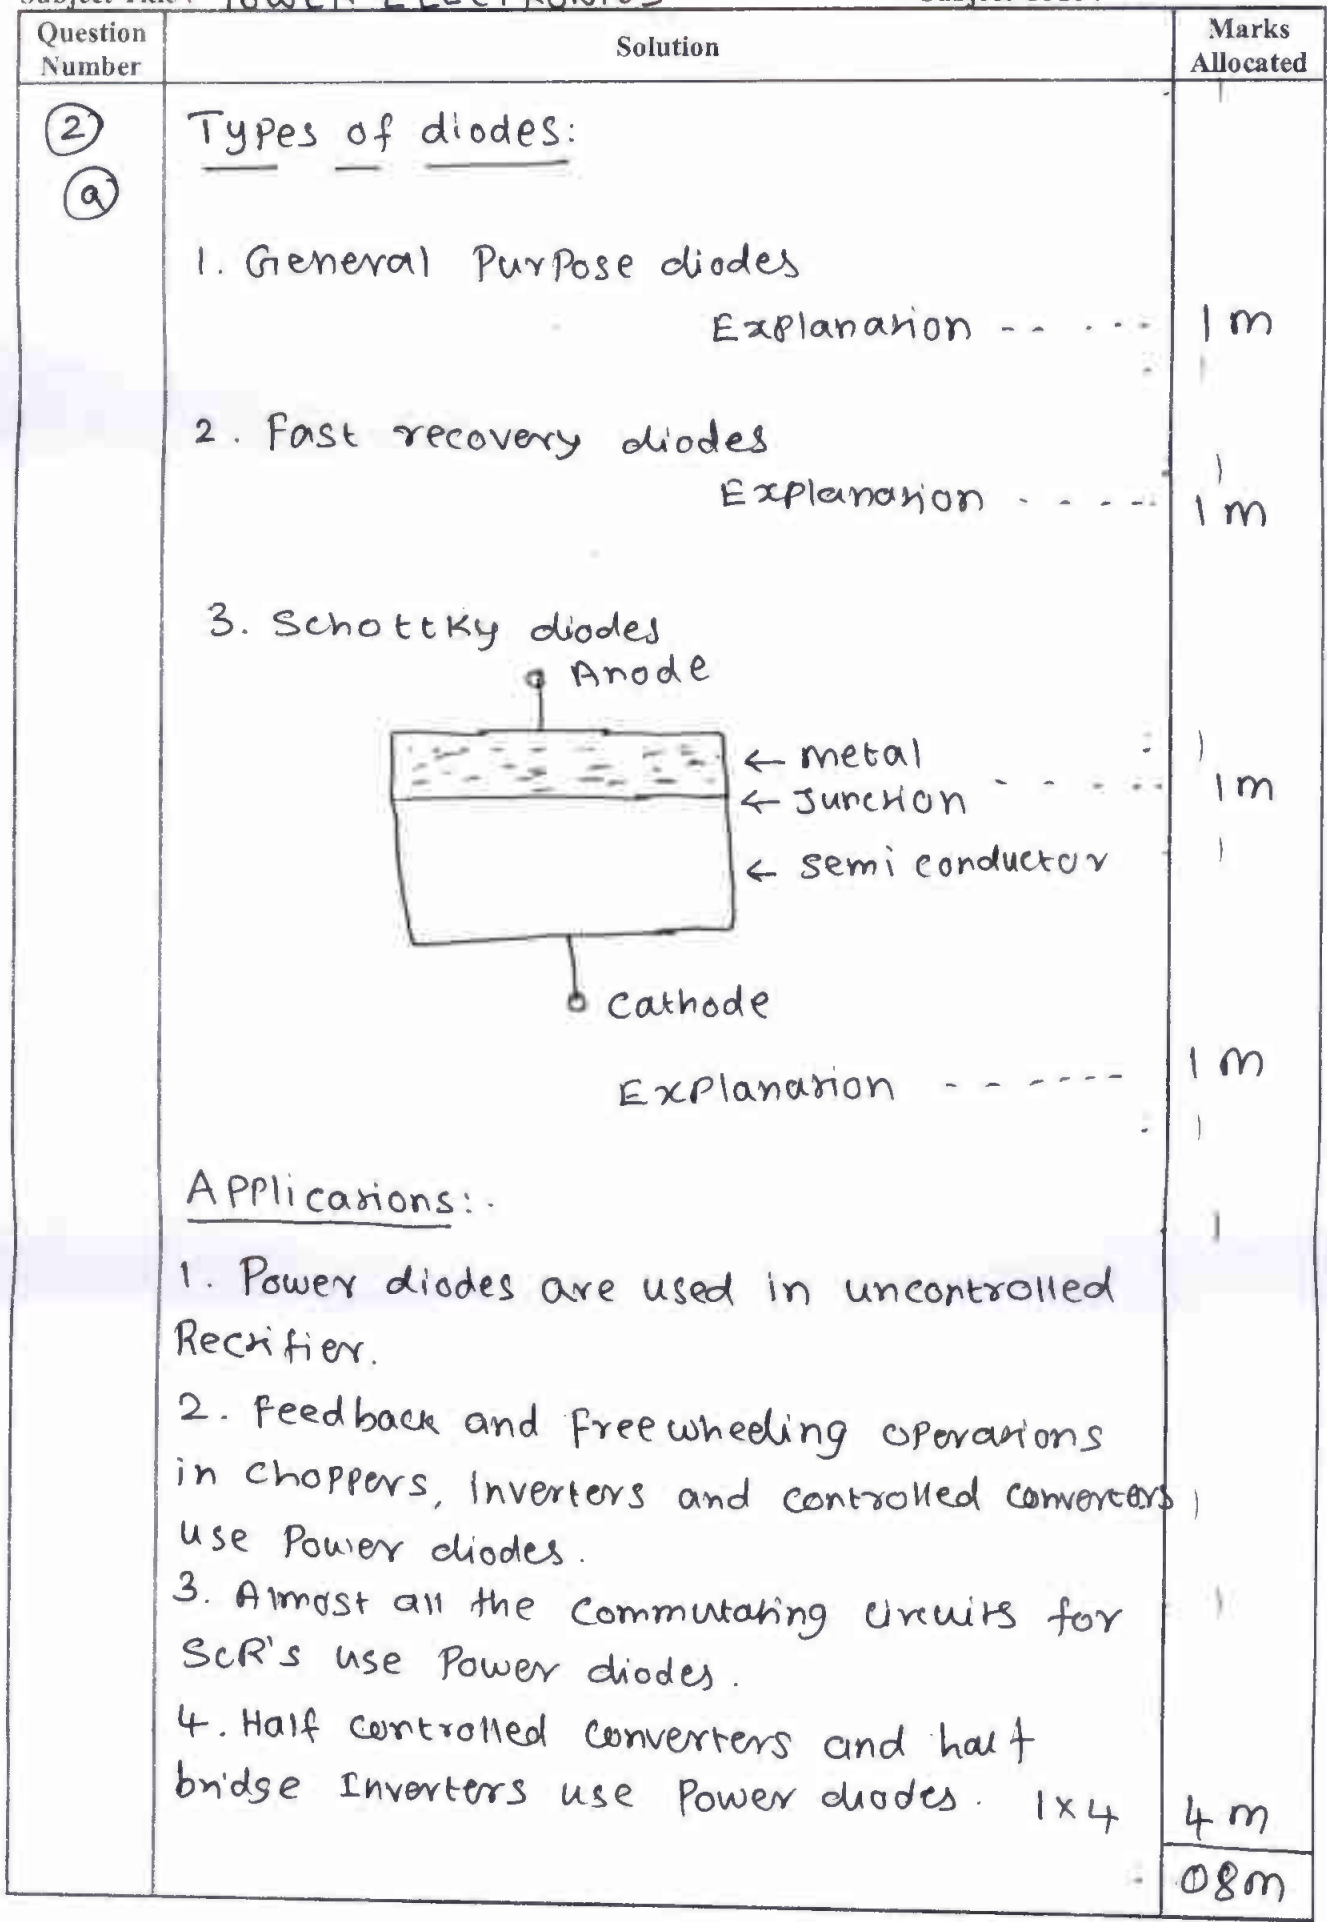 POWER ELECTRONICS
Question Number
Solution
Marks Allocated
2
a
Types of diodes:
1. General Purpose diodes
Explanation - - - - - 1 m
2. Fast recovery diodes
Explanation - - - - - 1 m
3. Schottky diodes
Anode
← metal
← Junction - - - - - 1 m
← semi conductor
Cathode
Explanation - - - - - - 1 m
Applications:.
1. Power diodes are used in uncontrolled
Rectifier.
2. Feedback and Freewheeling operations
in choppers, inverters and controlled converters
use Power diodes.
3. Almost all the commutating circuits for
SCR's use Power diodes.
4. Half controlled converters and half
bridge Inverters use Power diodes. 1 x 4 4 m
08m